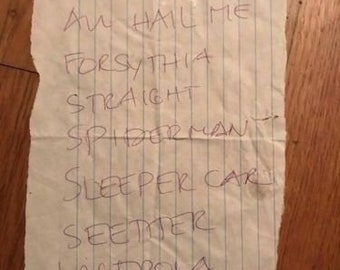 ALL HAIL ME
FORSYTHIA
STRAIGHT
SPIDERMAN
SLEEPER CAR
SEETHER